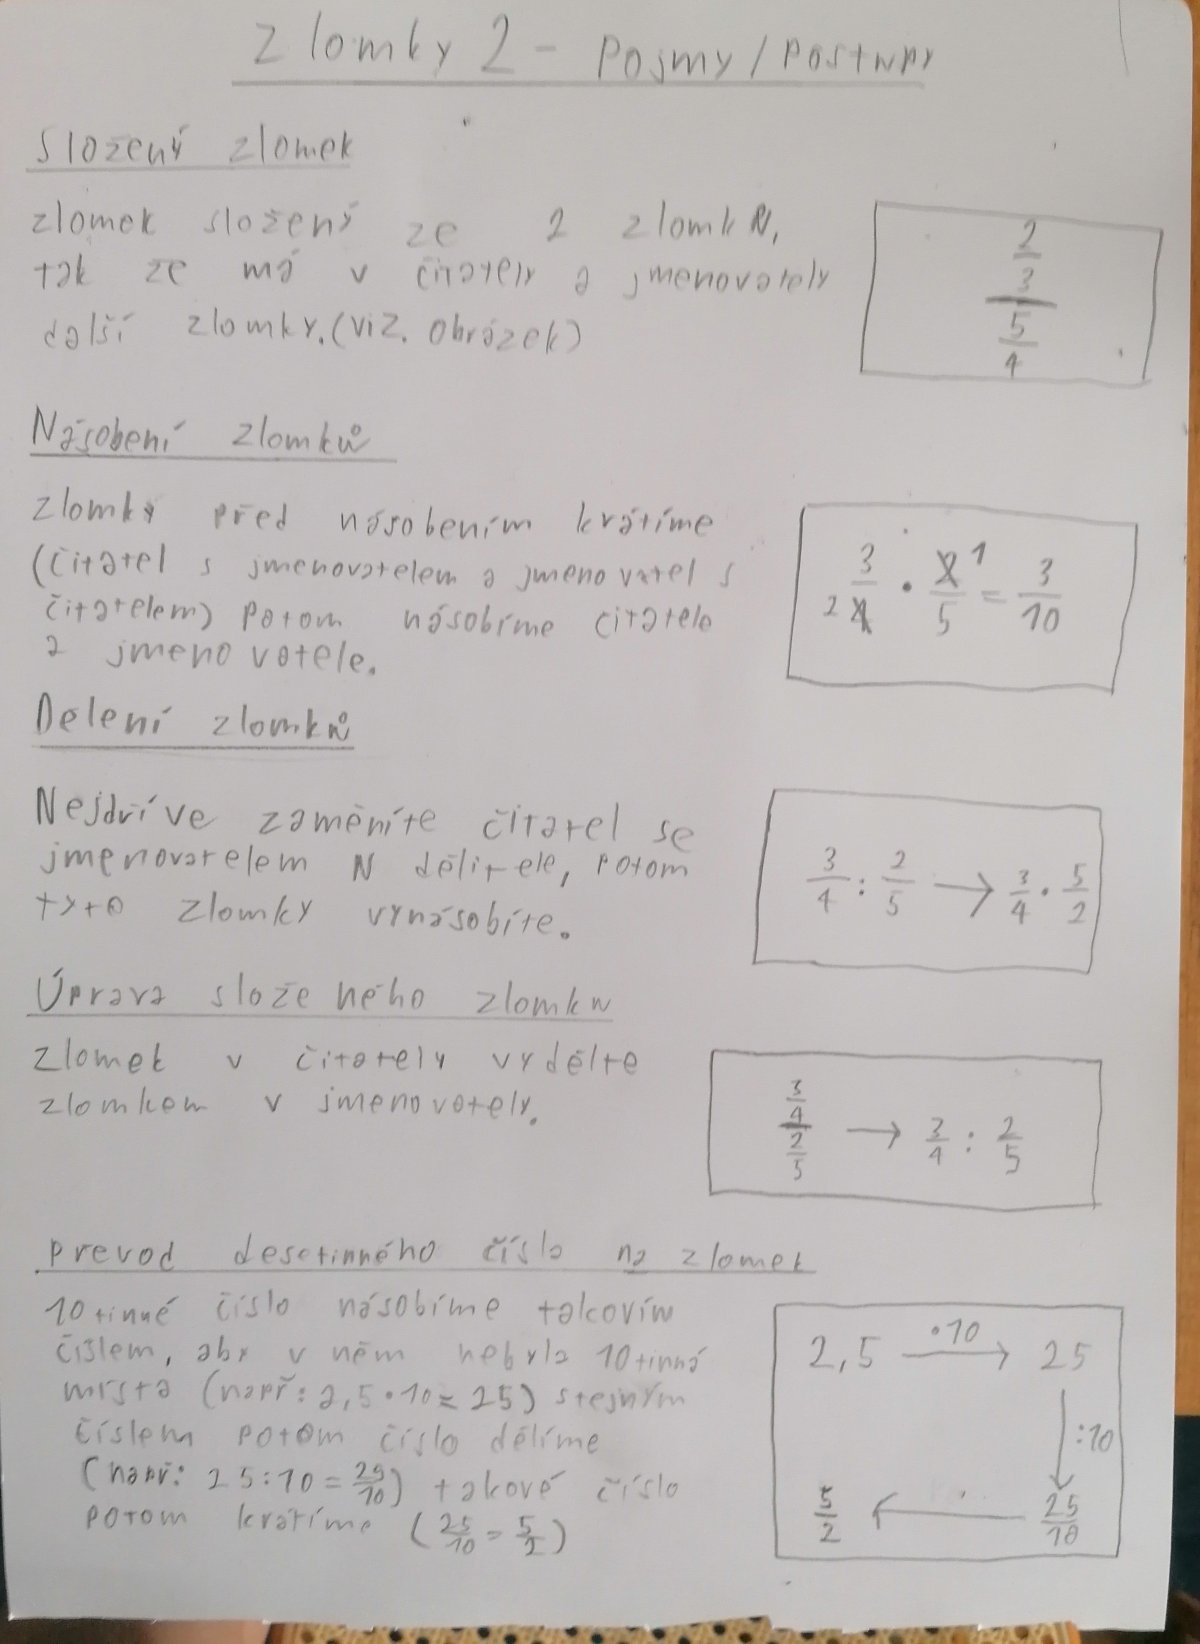 Zlomky 2 - Pojmy/Postupy
Složený zlomek
zlomek složený ze 2 zlomků,
tak ze má v čitately a jmenovately
další zlomky. (viz. obrázek)
2
3
5
4
Násobení zlomků
zlomky před násobením krátíme
(čitatel s jmenovatelem a jmenovatel s
čitatelem) potom násobíme čitatele
a jmenovatele.
3/4 2 · 2/5 1 = 3/10
Dělení zlomků
Nejdříve zaměníte čitatel se
jmenovatelem u dělitele, potom
tyto zlomky vynásobíte.
3/4 : 2/5 → 3/4 · 5/2
Úprava složeného zlomku
zlomek v čitately vydělte
zlomkem v jmenovately.
3/4 / 2/5 → 3/4 : 2/5
převod desetinného čísla na zlomek
10tinné číslo násobíme takovím
číslem, aby v něm nebyla 10tinná
místa (např: 2,5·10=25) stejným
číslem potom číslo dělíme
(např: 25:10=25/10) takové číslo
potom krátíme (25/10=5/2)
2,5 ·10 → 25
:10
5/2 ← 25/10